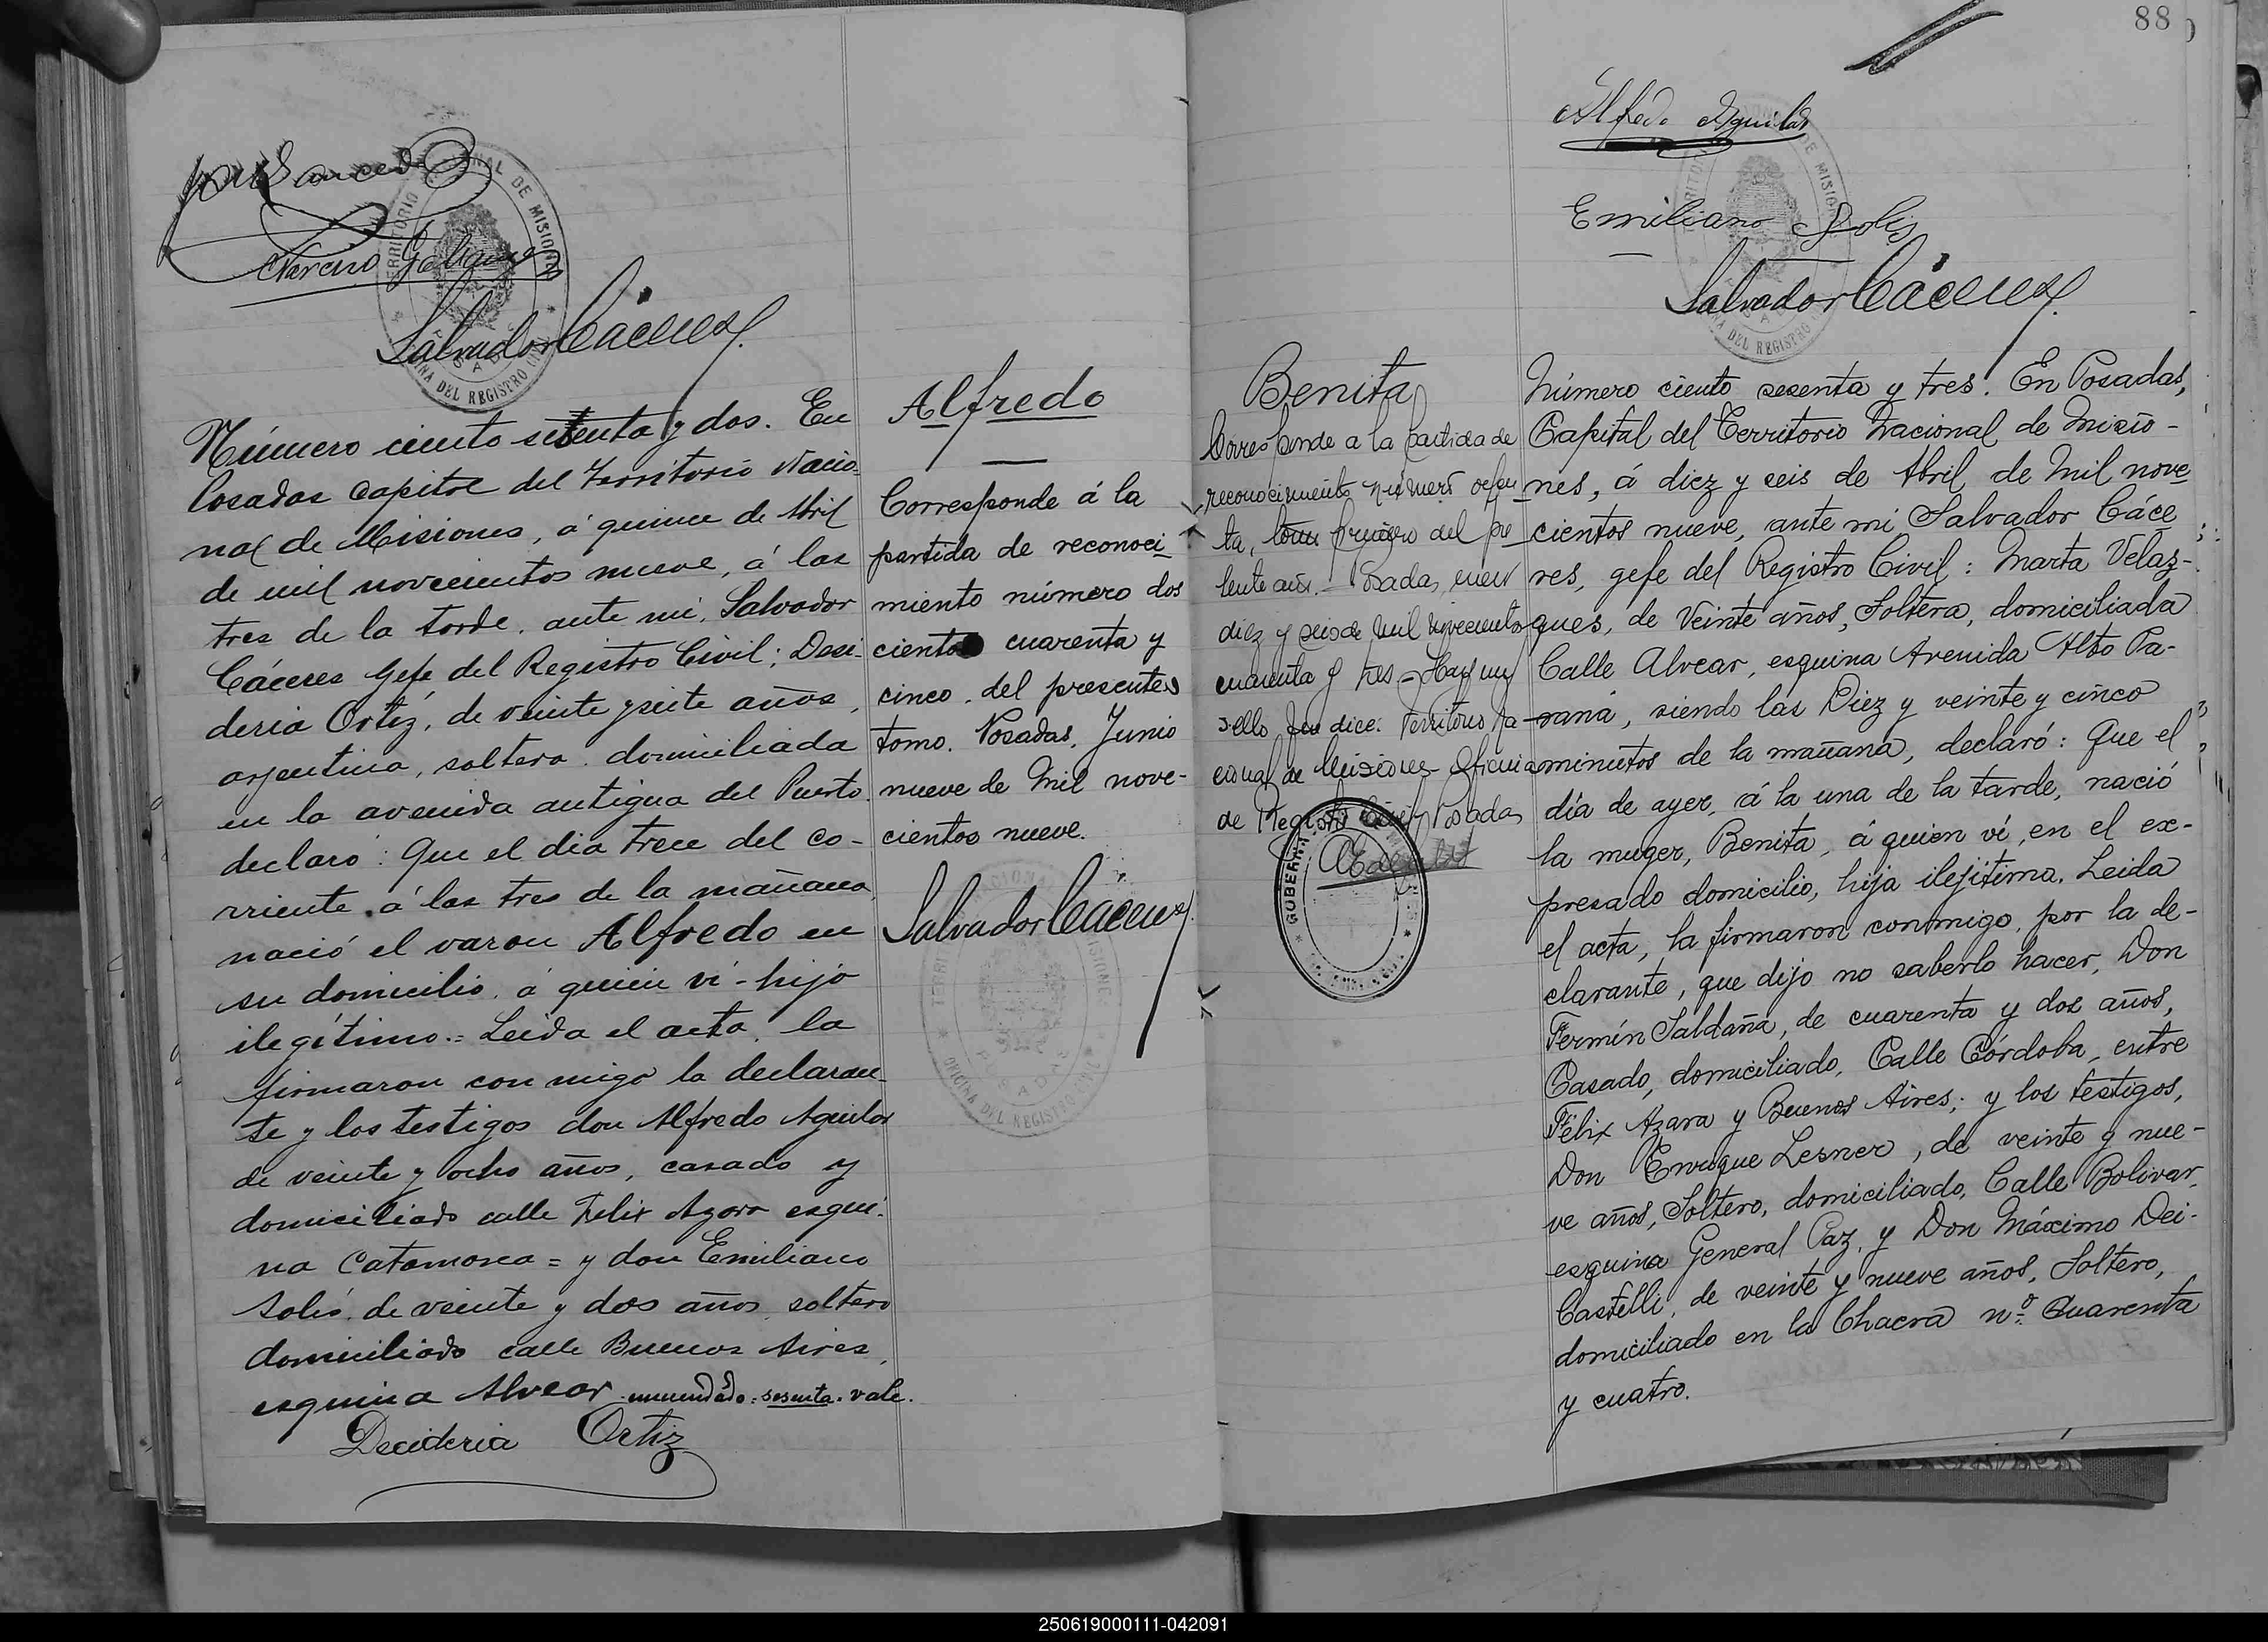 Narciso Galiano
TERRITORIO NACIONAL DE MISIONES
POSADAS
OFICINA DEL REGISTRO CIVIL
Salvador Cáceres
Número ciento sesenta y dos. En
Posadas capital del Territorio Nacio-
nal de Misiones, á quince de Abril
de mil novecientos nueve, á las
tres de la tarde, ante mi, Salvador
Cáceres Gefe del Registro Civil; Desi-
deria Ortiz, de veinte y siete años,
argentina, soltera, domiciliada
en la avenida antigua del Puerto,
declaró: Que el dia trece del co-
rriente, á las tres de la mañana,
nació el varon Alfredo en
su domicilio, á quien ví - hijo
ilegítimo.= Leida el acta, la
firmaron con migo la declaran-
te y los testigos don Alfredo Aguilar
de veinte y ocho años, casado y
domiciliado calle Felix Azara esqui-
na Catamarca = y don Emiliano
Solis, de veinte y dos años, soltero
domiciliado calle Buenos Aires,
esquina Alvear. enmendado: sesenta. vale.
Decideria Ortiz
Alfredo
Corresponde á la
partida de reconoci-
miento número dos
ciento cuarenta y
cinco, del presente
tomo. Posadas, Junio
nueve de Mil nove-
cientos nueve.
Salvador Cáceres
TERRITORIO NACIONAL DE MISIONES
POSADAS
OFICINA DEL REGISTRO CIVIL
88
Alfredo Aguilar
Emiliano Solis
Salvador Cáceres
Benita
Corresponde a la partida de
reconocimiento número ochen-
ta, tomo primero del pre-
sente año. Posadas, enero
diez y seis de mil novecientos
cuarenta y tres - Hay un
sello que dice: Territorio Na-
cional de Misiones - Oficina
de Registro Civil Posadas
GOBERN
Número ciento sesenta y tres. En Posadas,
Capital del Territorio Nacional de Misio-
nes, á diez y seis de Abril de Mil nove
cientos nueve, ante mi Salvador Cáce
res, gefe del Registro Civil: Marta Velaz-
ques, de Veinte años, Soltera, domiciliada
Calle Alvear, esquina Avenida Alto Pa-
raná, siendo las Diez y veinte y cinco
minutos de la mañana, declaró: Que el
día de ayer, á la una de la tarde, nació
la muger, Benita, á quien ví, en el ex-
presado domicilio, hija ilejítima. Leida
el acta, la firmaron conmigo, por la de-
clarante, que dijo no saberlo hacer, Don
Fermín Saldaña, de cuarenta y dos años,
Casado, domiciliado, Calle Córdoba, entre
Félix Azara y Buenos Aires; y los testigos,
Don Enrique Lesner, de veinte y nue-
ve años, Soltero, domiciliado, Calle Bolivar,
esquina General Paz, y Don Máximo Dei-
Castelli, de veinte y nueve años, Soltero,
domiciliado en la Chacra nº. Cuarenta
y cuatro.
250619000111-042091